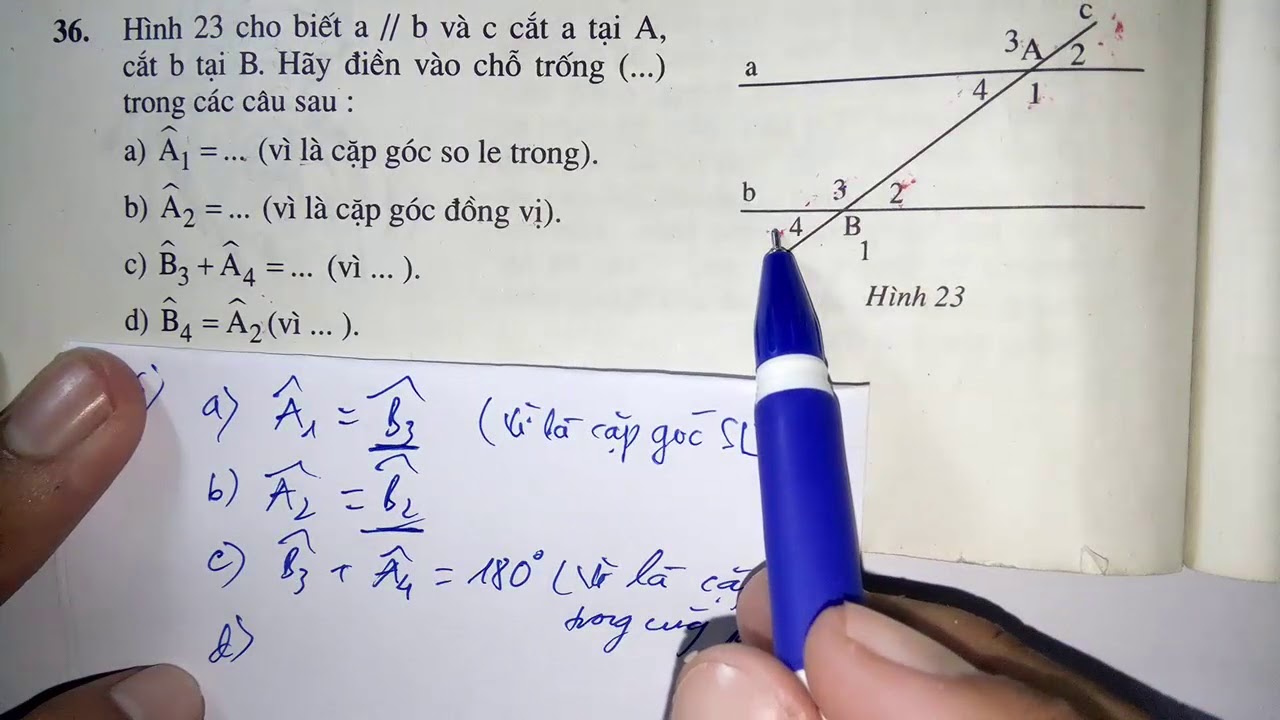 36. Hình 23 cho biết a // b và c cắt a tại A,
cắt b tại B. Hãy điền vào chỗ trống (...)
trong các câu sau :
a) Â₁ = ... (vì là cặp góc so le trong).
b) Â₂ = ... (vì là cặp góc đồng vị).
c) B̂₃ + Â₄ = ... (vì ... ).
d) B̂₄ = Â₂ (vì ... ).
c
3 A 2
a
4 1
b 3 2
4 B
1
Hình 23
a) Â₁ = B̂₃ (vì là cặp góc SL
b) Â₂ = B̂₂
c) B̂₃ + Â₄ = 180° (vì là
trong cùng
d)